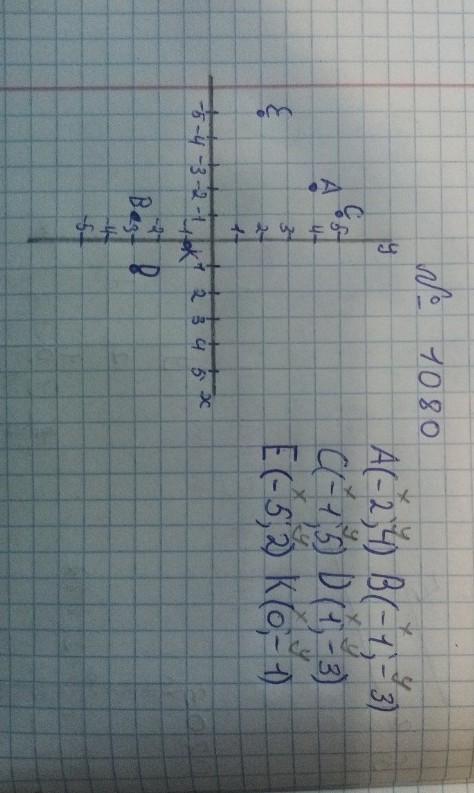 № 1080
y
C 5
A 4
3
E 2
1
-5 -4 -3 -2 -1 1 2 3 4 5 x
-1 K
-2
B -3 D
-4
-5
x y x y
A(-2,4) B(-1,-3)
x y x y
C(-1,5) D(1,-3)
x y x y
E(-5,2) K(0,-1)